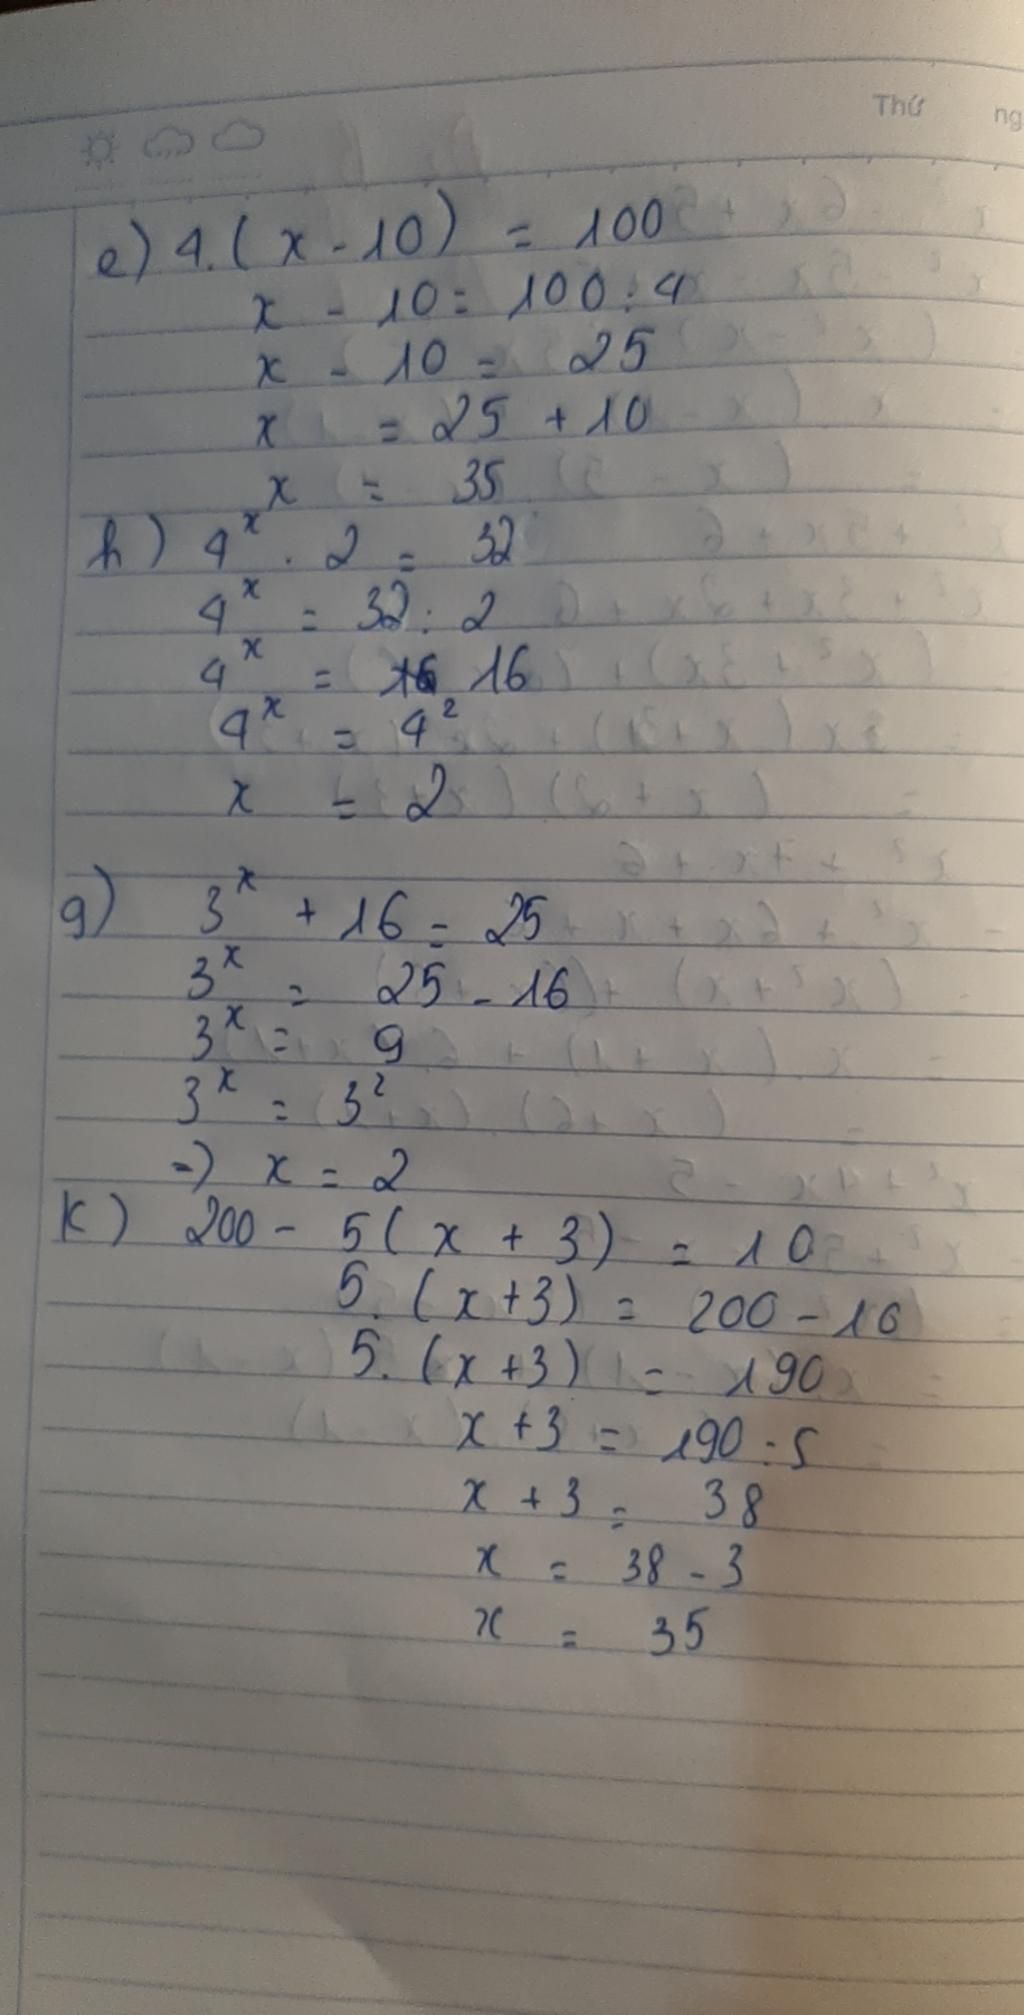 Thứ ng
e) 4.(x - 10) = 100
x - 10 = 100 : 4
x - 10 = 25
x = 25 + 10
x = 35
h) 4^x . 2 = 32
4^x = 32 : 2
4^x = 16
4^x = 4^2
x = 2
g) 3^x + 16 = 25
3^x = 25 - 16
3^x = 9
3^x = 3^2
=) x = 2
K) 200 - 5(x + 3) = 10
5.(x+3) = 200 - 10
5.(x+3) = 190
x + 3 = 190 : 5
x + 3 = 38
x = 38 - 3
x = 35